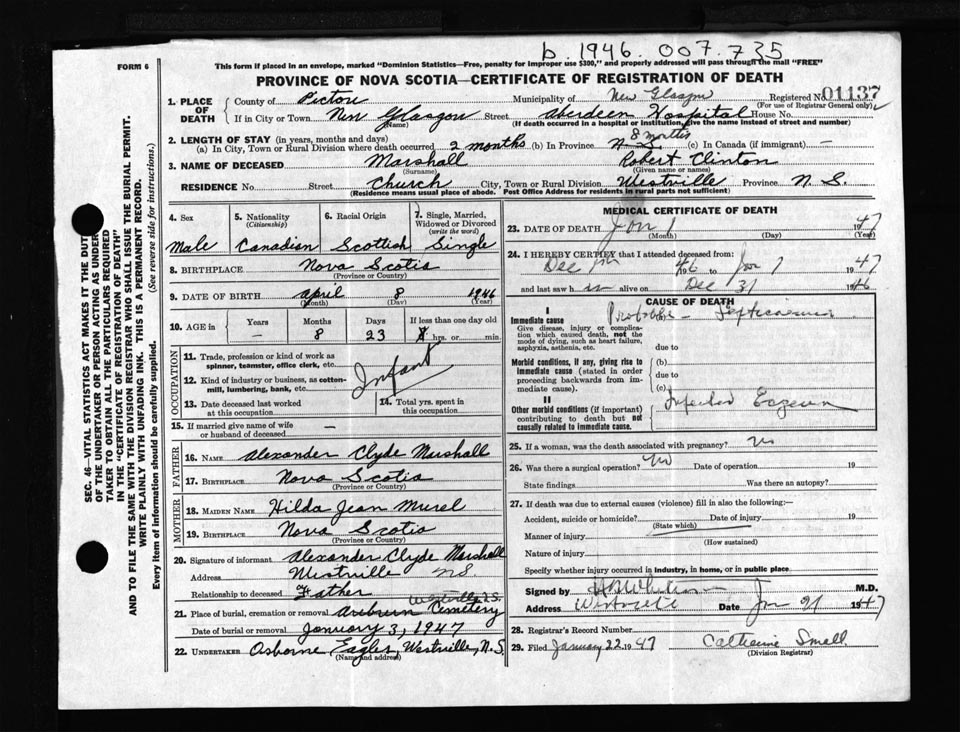 b. 1946. 007.735
FORM 6
This form if placed in an envelope, marked "Dominion Statistics—Free, penalty for improper use $300," and properly addressed will pass through the mail "FREE"
PROVINCE OF NOVA SCOTIA—CERTIFICATE OF REGISTRATION OF DEATH
1. PLACE OF DEATH County of Pictou Municipality of New Glasgow Registered No. 01137
(For use of Registrar General only)
If in City or Town New Glasgow Street Aberdeen Hospital House No.
(Name) (If death occurred in a hospital or institution, give the name instead of street and number)
2. LENGTH OF STAY (in years, months and days) 8 months
(a) In City, Town or Rural Division where death occurred 2 months (b) In Province N. S. (c) In Canada (if immigrant) —
3. NAME OF DECEASED Marshall Robert Clinton
(Surname) (Given name or names)
RESIDENCE No. Street Church City, Town or Rural Division Westville Province N. S.
(Residence means usual place of abode. Post Office Address for residents in rural parts not sufficient)
4. Sex Male
5. Nationality (Citizenship) Canadian
6. Racial Origin Scottish
7. Single, Married, Widowed or Divorced (write the word) Single
8. BIRTHPLACE Nova Scotia
(Province or Country)
9. DATE OF BIRTH April 8 1946
(Month) (Day) (Year)
10. AGE in Years Months Days If less than one day old
— 8 23 hrs. or min.
OCCUPATION
11. Trade, profession or kind of work as spinner, teamster, office clerk, etc.
12. Kind of industry or business, as cotton-mill, lumbering, bank, etc. Infant
13. Date deceased last worked at this occupation
14. Total yrs. spent in this occupation
15. If married give name of wife or husband of deceased —
FATHER
16. NAME Alexander Clyde Marshall
17. BIRTHPLACE Nova Scotia
(Province or Country)
MOTHER
18. MAIDEN NAME Hilda Jean Murel
19. BIRTHPLACE Nova Scotia
(Province or Country)
20. Signature of informant Alexander Clyde Marshall
Address Westville NS.
Relationship to deceased Father
Westville N.S.
21. Place of burial, cremation or removal Auburn Cemetery
Date of burial or removal January 3, 1947
22. UNDERTAKER Osborne Eagles, Westville, N. S.
(Name and address)
MEDICAL CERTIFICATE OF DEATH
23. DATE OF DEATH Jan 1 1947
(Month) (Day) (Year)
24. I HEREBY CERTIFY that I attended deceased from:
Dec 46 to Jan 1 1947
and last saw h alive on Dec 31 1946
CAUSE OF DEATH
I
Immediate cause Probable - Septicaemia
Give disease, injury or complication which caused death, not the mode of dying, such as heart failure, asphyxia, asthenia, etc.
due to
Morbid conditions, if any, giving rise to immediate cause (stated in order proceeding backwards from immediate cause).
(b)
due to
(c)
II
Other morbid conditions (if important) contributing to death but not causally related to immediate cause.
Infected Eczema
25. If a woman, was the death associated with pregnancy? no
26. Was there a surgical operation? no Date of operation 19
State findings Was there an autopsy?
27. If death was due to external causes (violence) fill in also the following:—
Accident, suicide or homicide? Date of injury 19
(State which)
Manner of injury
(How sustained)
Nature of injury
Specify whether injury occurred in industry, in home, or in public place
Signed by M.D.
Address Westville Date Jan 21 1947
28. Registrar's Record Number
29. Filed January 22 1947 Catherine Small
(Division Registrar)
SEC. 46—VITAL STATISTICS ACT MAKES IT THE DUTY
OF THE UNDERTAKER OR PERSON ACTING AS UNDER-
TAKER TO OBTAIN ALL THE PARTICULARS REQUIRED
IN THE "CERTIFICATE OF REGISTRATION OF DEATH"
AND TO FILE THE SAME WITH THE DIVISION REGISTRAR WHO SHALL ISSUE THE BURIAL PERMIT.
WRITE PLAINLY WITH UNFADING INK. THIS IS A PERMANENT RECORD.
Every item of information should be carefully supplied. (See reverse side for instructions.)